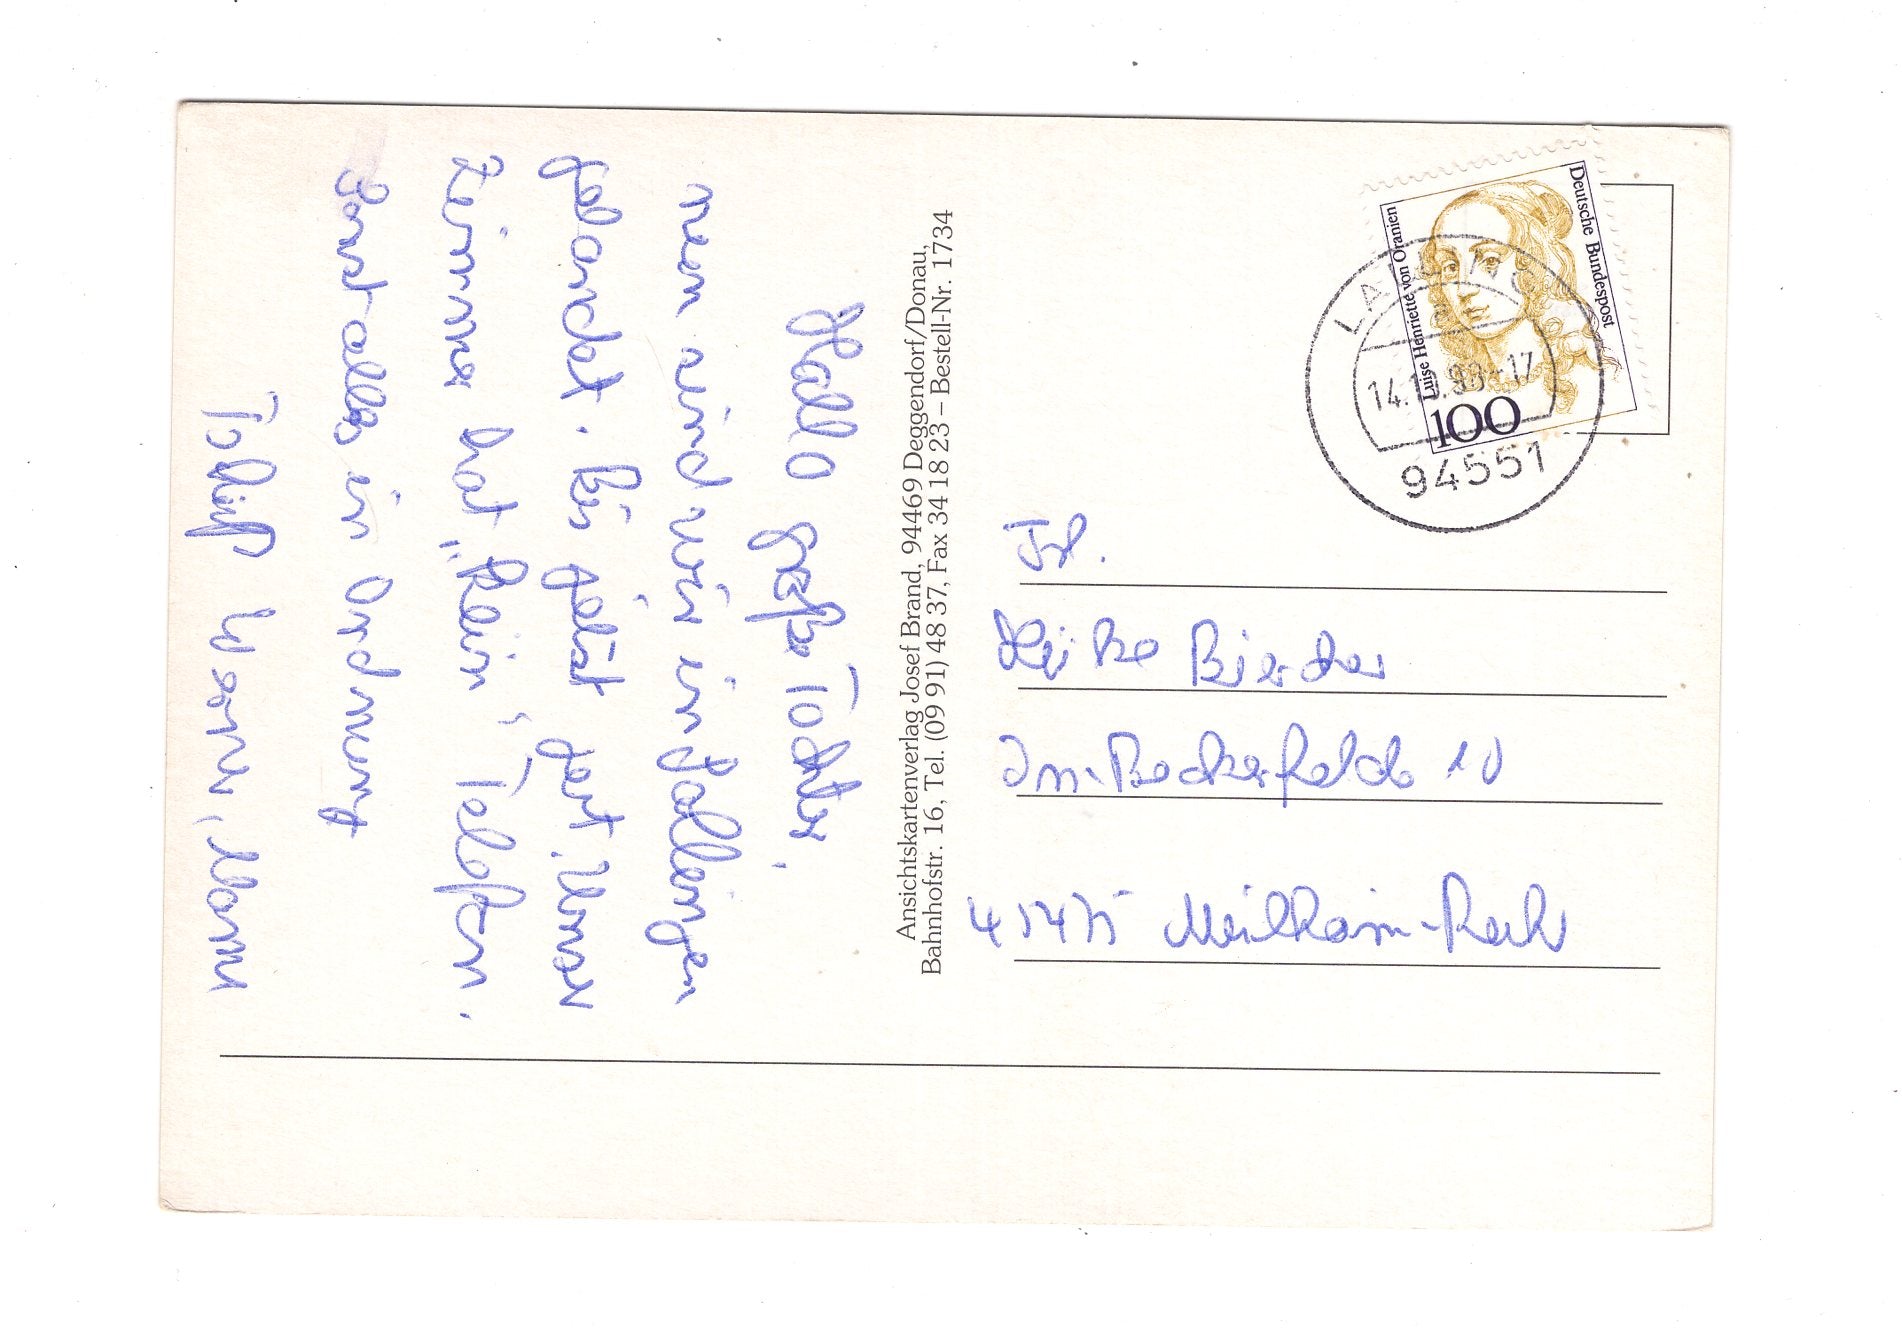 Hallo große Tochter,
nun sind wir in Lallingen
gelandet. Bis jetzt gut. Unser
Zimmer hat "kein" Telefon.
Sonst alles in Ordnung
Tschüß
Ansichtskartenverlag Josef Brand, 94469 Deggendorf/Donau,
Bahnhofstr. 16, Tel. (09 91) 48 37, Fax 34 18 23 – Bestell-Nr. 1734
Deutsche Bundespost
Luise Henriette von Oranien
100
LALLING
94551
Frl.
Im Beckerfelde 10
45475 Mülheim-Ruhr